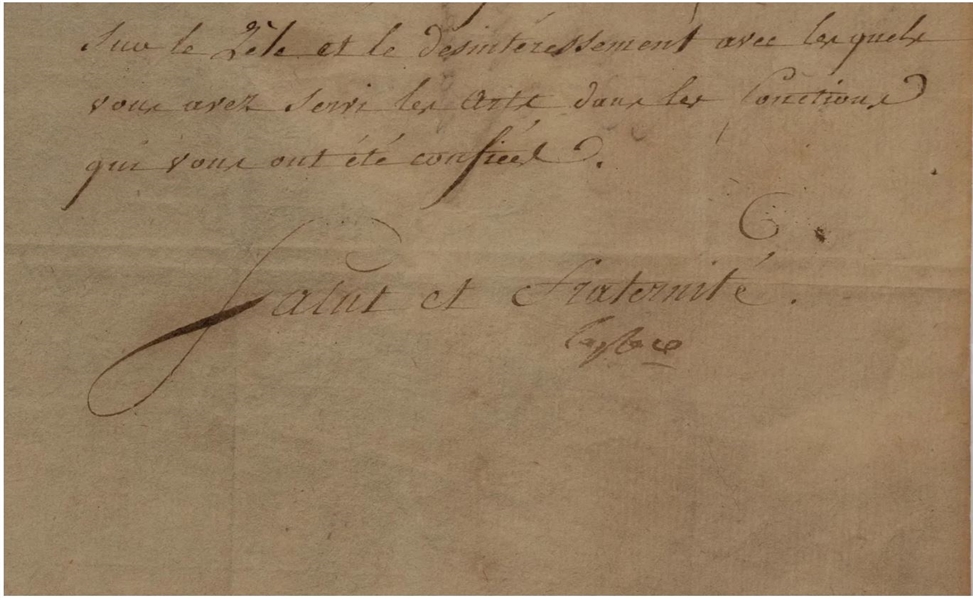 sur le Zèle et le desintéressement avec lesquels
vous avez servi les arts dans les fonctions
qui vous ont été confiées.
Salut et Fraternité.